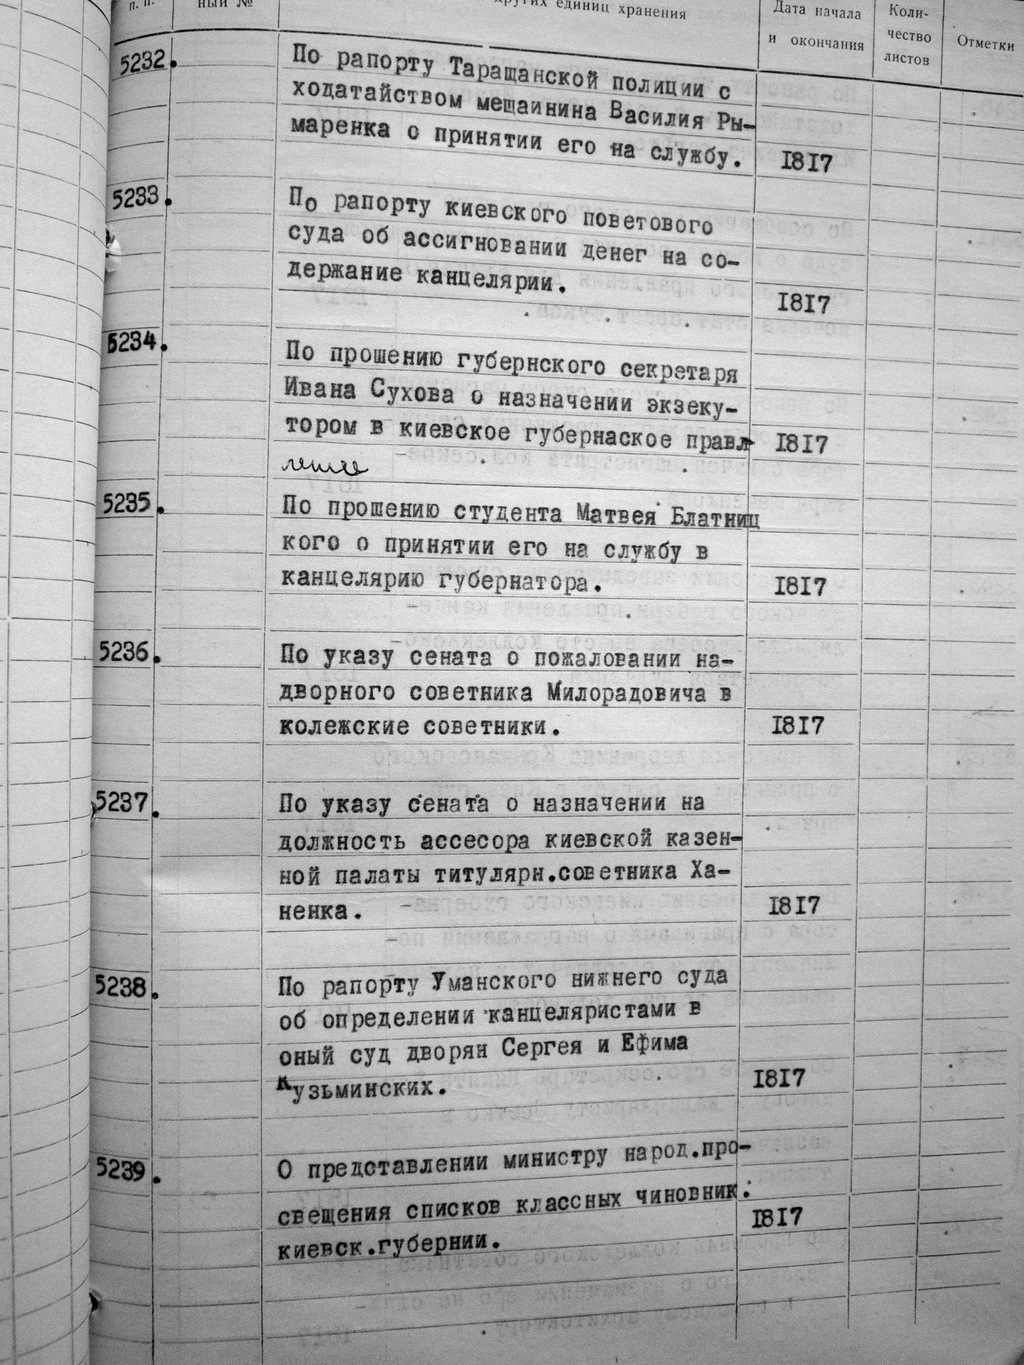 п. п.
ный №
других единиц хранения
Дата начала
и окончания
Коли-
чество
листов
Отметки
5232.
По рапорту Таращанской полиции с
ходатайством мещаинина Василия Ры-
маренка о принятии его на службу.
1817
5233.
По рапорту киевского поветового
суда об ассигновании денег на со-
держание канцелярии.
1817
5234.
По прошению губернского секретаря
Ивана Сухова о назначении экзеку-
тором в киевское губернаское правл-
1817
ление
5235.
По прошению студента Матвея Блатниц
кого о принятии его на службу в
канцелярию губернатора.
1817
5236.
По указу сената о пожаловании на-
дворного советника Милорадовича в
колежские советники.
1817
5237.
По указу сената о назначении на
должность ассесора киевской казен-
ной палаты титулярн.советника Ха-
ненка.
1817
5238.
По рапорту Уманского нижнего суда
об определении канцеляристами в
оный суд дворян Сергея и Ефима
Кузьминских.
1817
5239.
О представлении министру народ.про-
свещения списков классных чиновник.
киевск.губернии.
1817